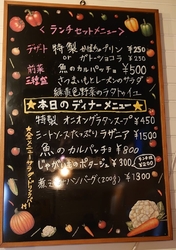 <ランチセットメニュー>
デザート 特製 かぼちゃプリン ¥250
or ガトーショコラ ¥250
前菜 魚のカルパッチョ ¥500
三種盛 さつまいもとレーズンのサラダ
緑黄色野菜のラタトゥイユ
★本日のディナーメニュー★
特製 オニオングラタンスープ ¥450
シーフードたっぷり ラザニア ¥1500
魚のカルパッチョ ¥800
じゃがいものポタージュ ¥300
煮込みハンバーグ(200g) ¥1300